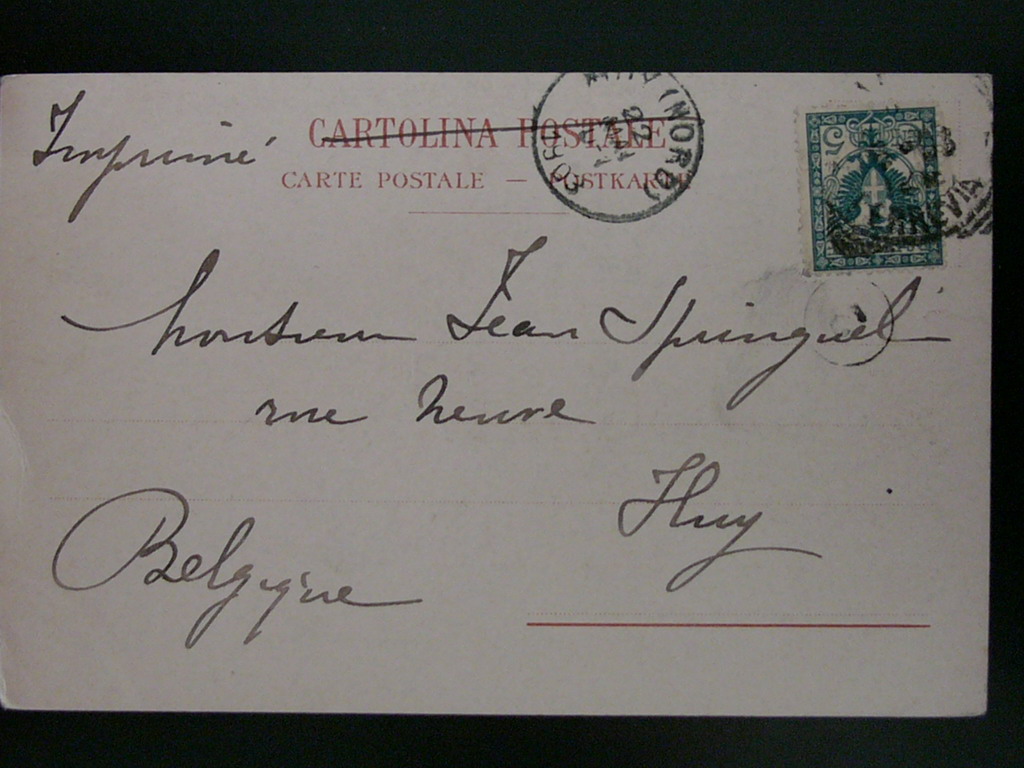 Imprimé
CARTOLINA POSTALE
CARTE POSTALE — POSTKARTE
HUY (NORD)
22
5
Monsieur Jean Springuel
rue neuve
Huy
Belgique